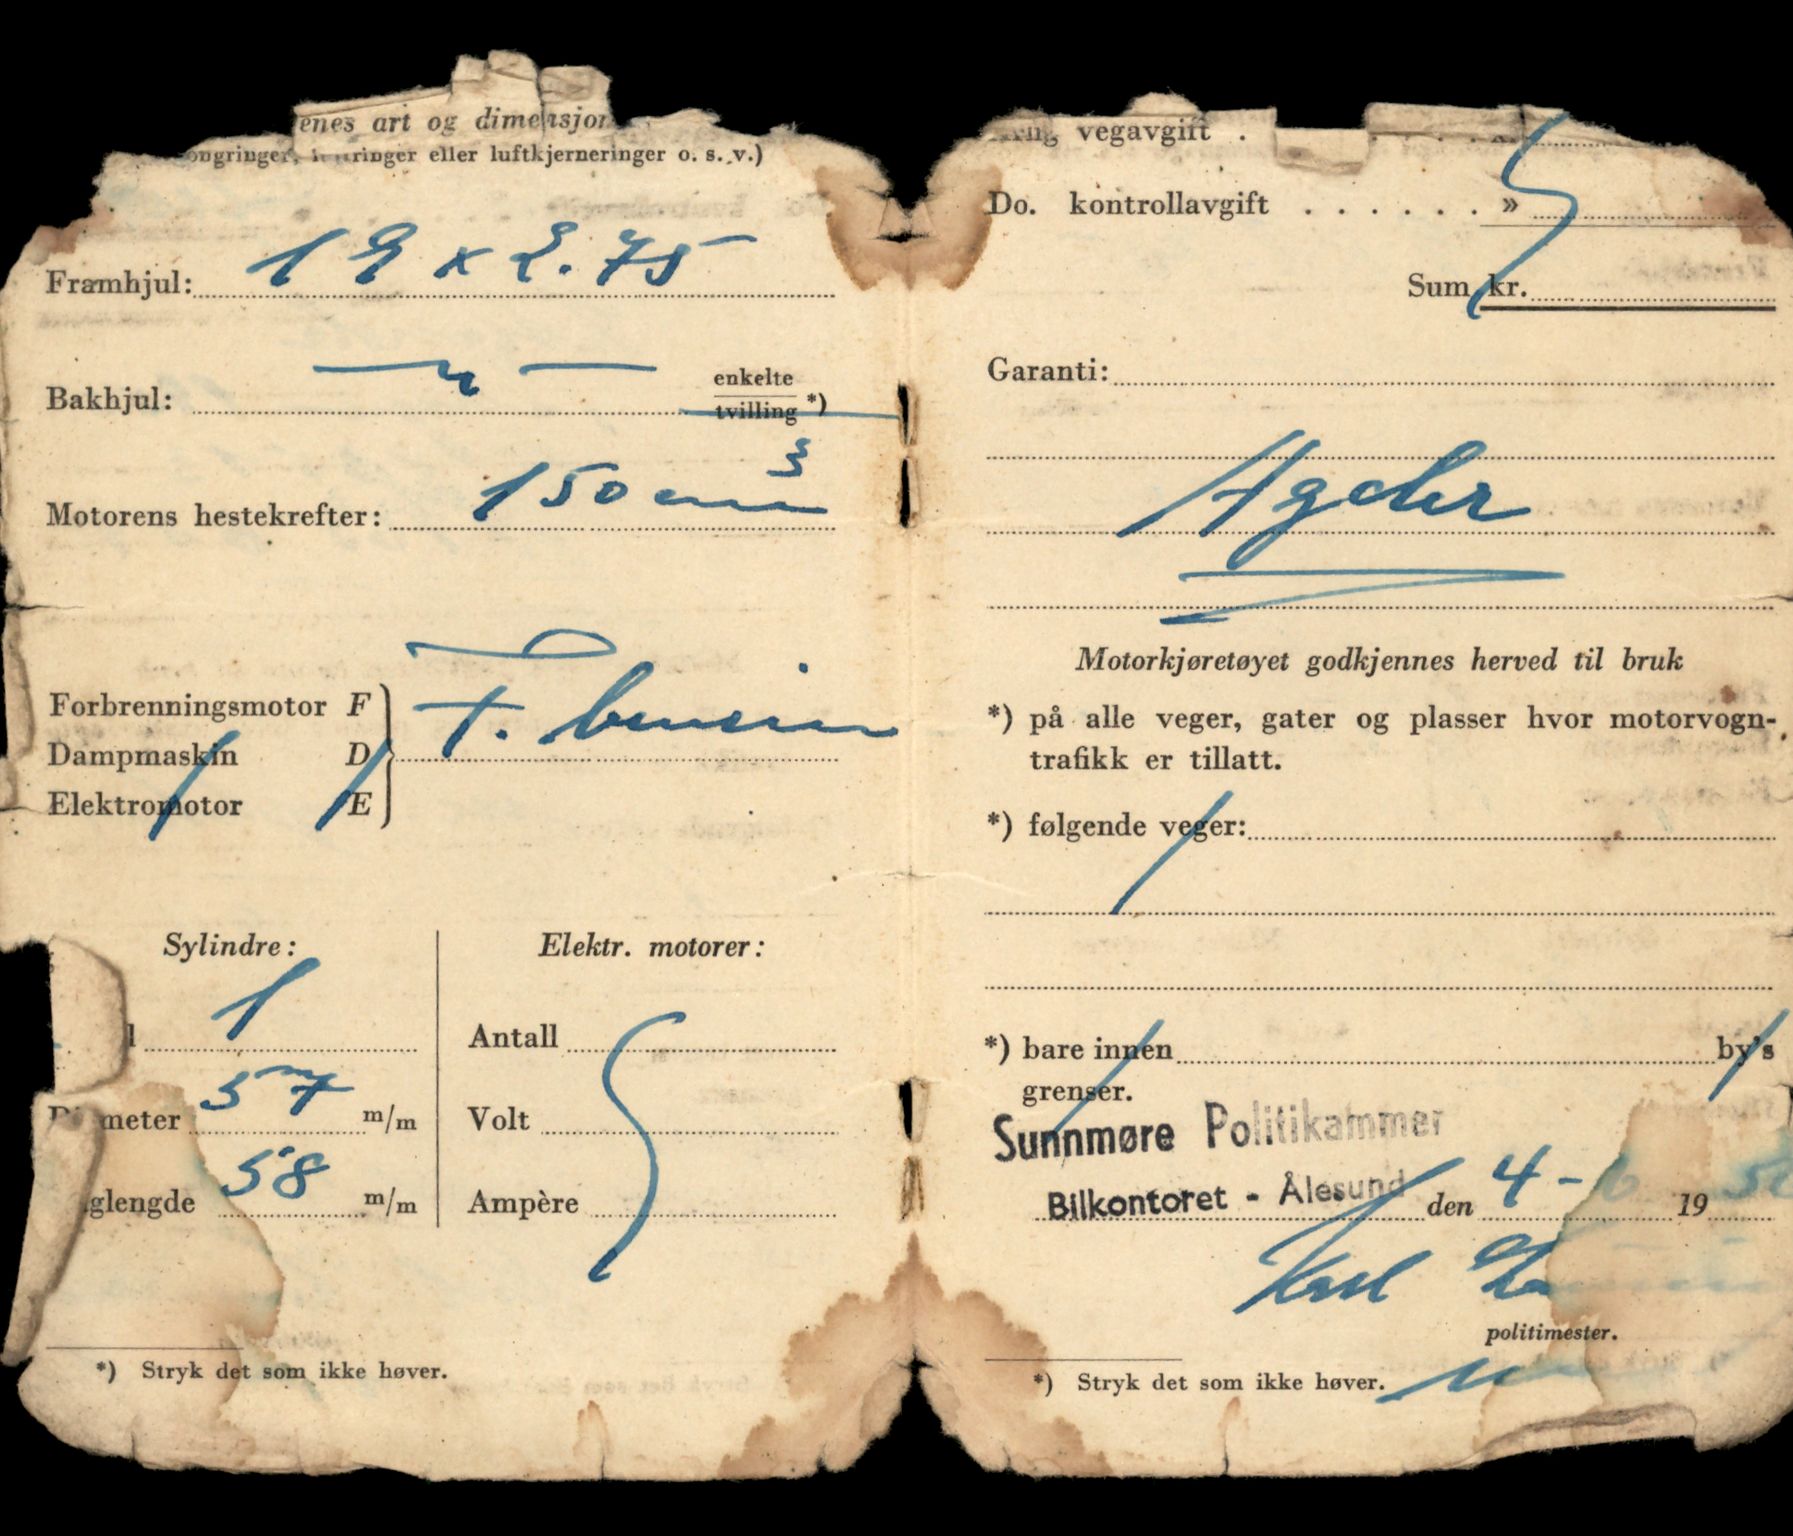 enes art og dimensjon
ongringer, luftringer eller luftkjerneringer o. s. v.)
Framhjul: 19 x 2.75
Bakhjul: — " — enkelte
tvilling *)
Motorens hestekrefter: 150 cm³
Forbrenningsmotor F
Dampmaskin D
Elektromotor E
F. bensin
Sylindre:
l 1
Diameter 57 m/m
glengde 58 m/m
Elektr. motorer:
Antall
Volt
Ampère
*) Stryk det som ikke høver.
vegavgift . . . . . »
Do. kontrollavgift . . . . . . »
Sum kr.
Garanti:
Agder
Motorkjøretøyet godkjennes herved til bruk
*) på alle veger, gater og plasser hvor motorvogn-
trafikk er tillatt.
*) følgende veger:
*) bare innen by's
grenser.
Sunnmøre Politikammer
Bilkontoret - Ålesund den 4 - 6 19 
politimester.
*) Stryk det som ikke høver.